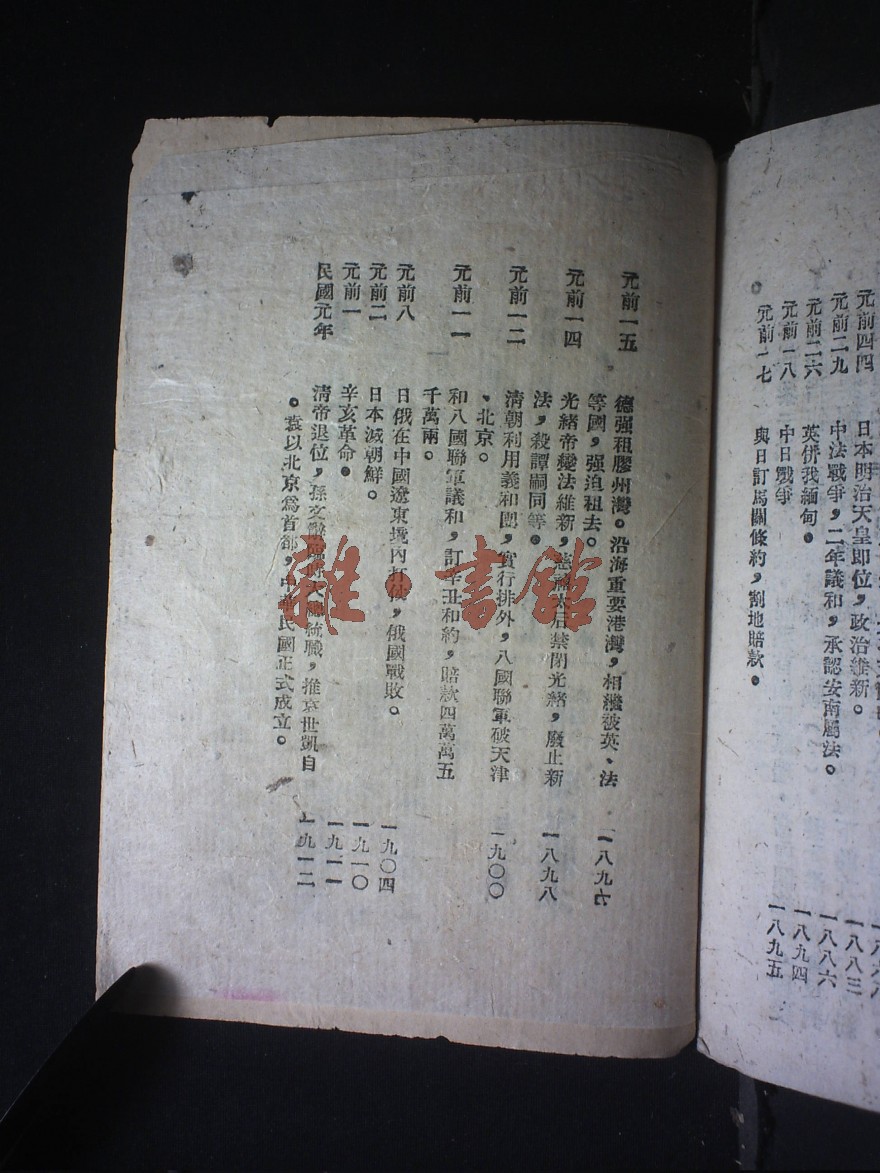 元前四四
日本明治天皇即位，政治維新。
元前二九
中法戰爭，二年議和，承認安南屬法。
一八八三
元前二六
英併我緬甸。
一八八六
元前一八
中日戰爭
一八九四
元前一七
與日訂馬關條約，割地賠款。
一八九五
元前一五
德强租膠州灣。沿海重要港灣，相繼被英、法
一八九七
等國，强迫租去。
元前一四
光緒帝變法維新，慈禧太后禁閉光緒，廢止新
一八九八
法，殺譚嗣同等。
元前一二
清朝利用義和團，實行排外，八國聯軍破天津
一九〇〇
、北京。
元前一一
和八國聯軍議和，訂辛丑和約，賠款四萬萬五
千萬兩。
元前八
日俄在中國遼東境內打仗，俄國戰敗。
一九〇四
元前二
日本滅朝鮮。
一九一〇
元前一
辛亥革命。
一九一一
民國元年
清帝退位，孫文辭臨時大總統職，推袁世凱自
一九一二
。袁以北京爲首都，中華民國正式成立。
雜·書館